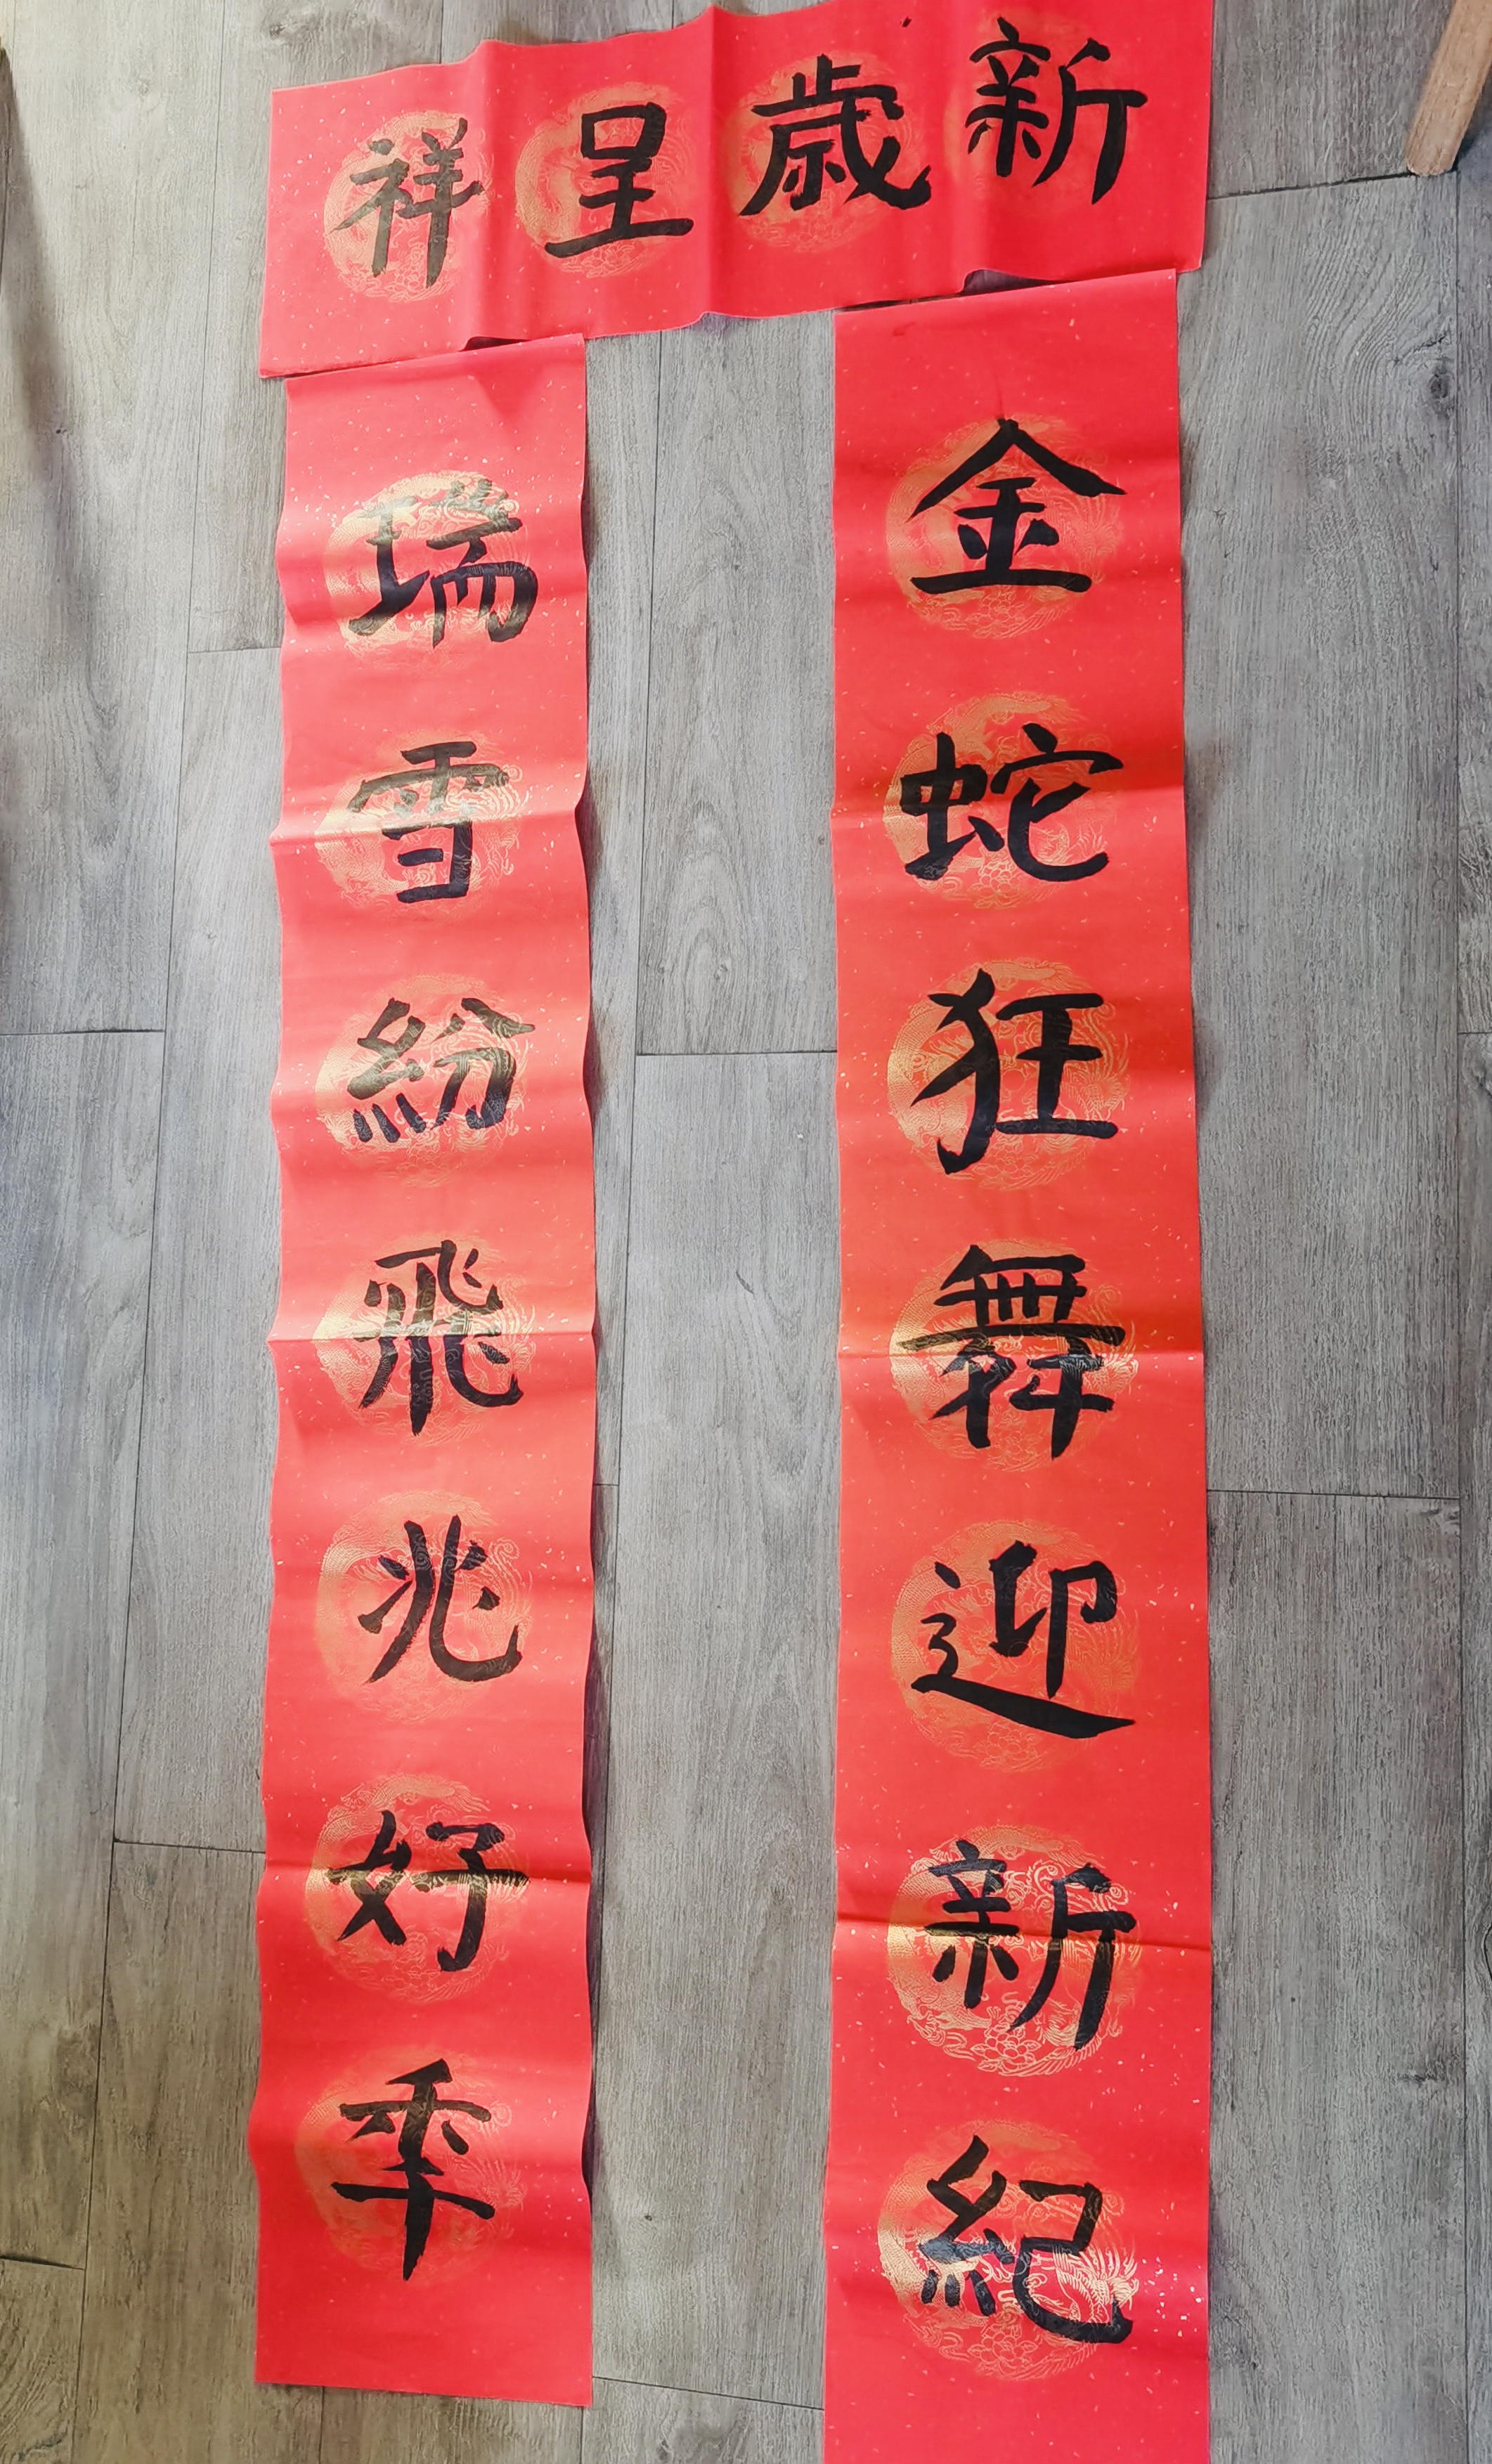 新歲呈祥
金蛇狂舞迎新紀
瑞雪紛飛兆好季